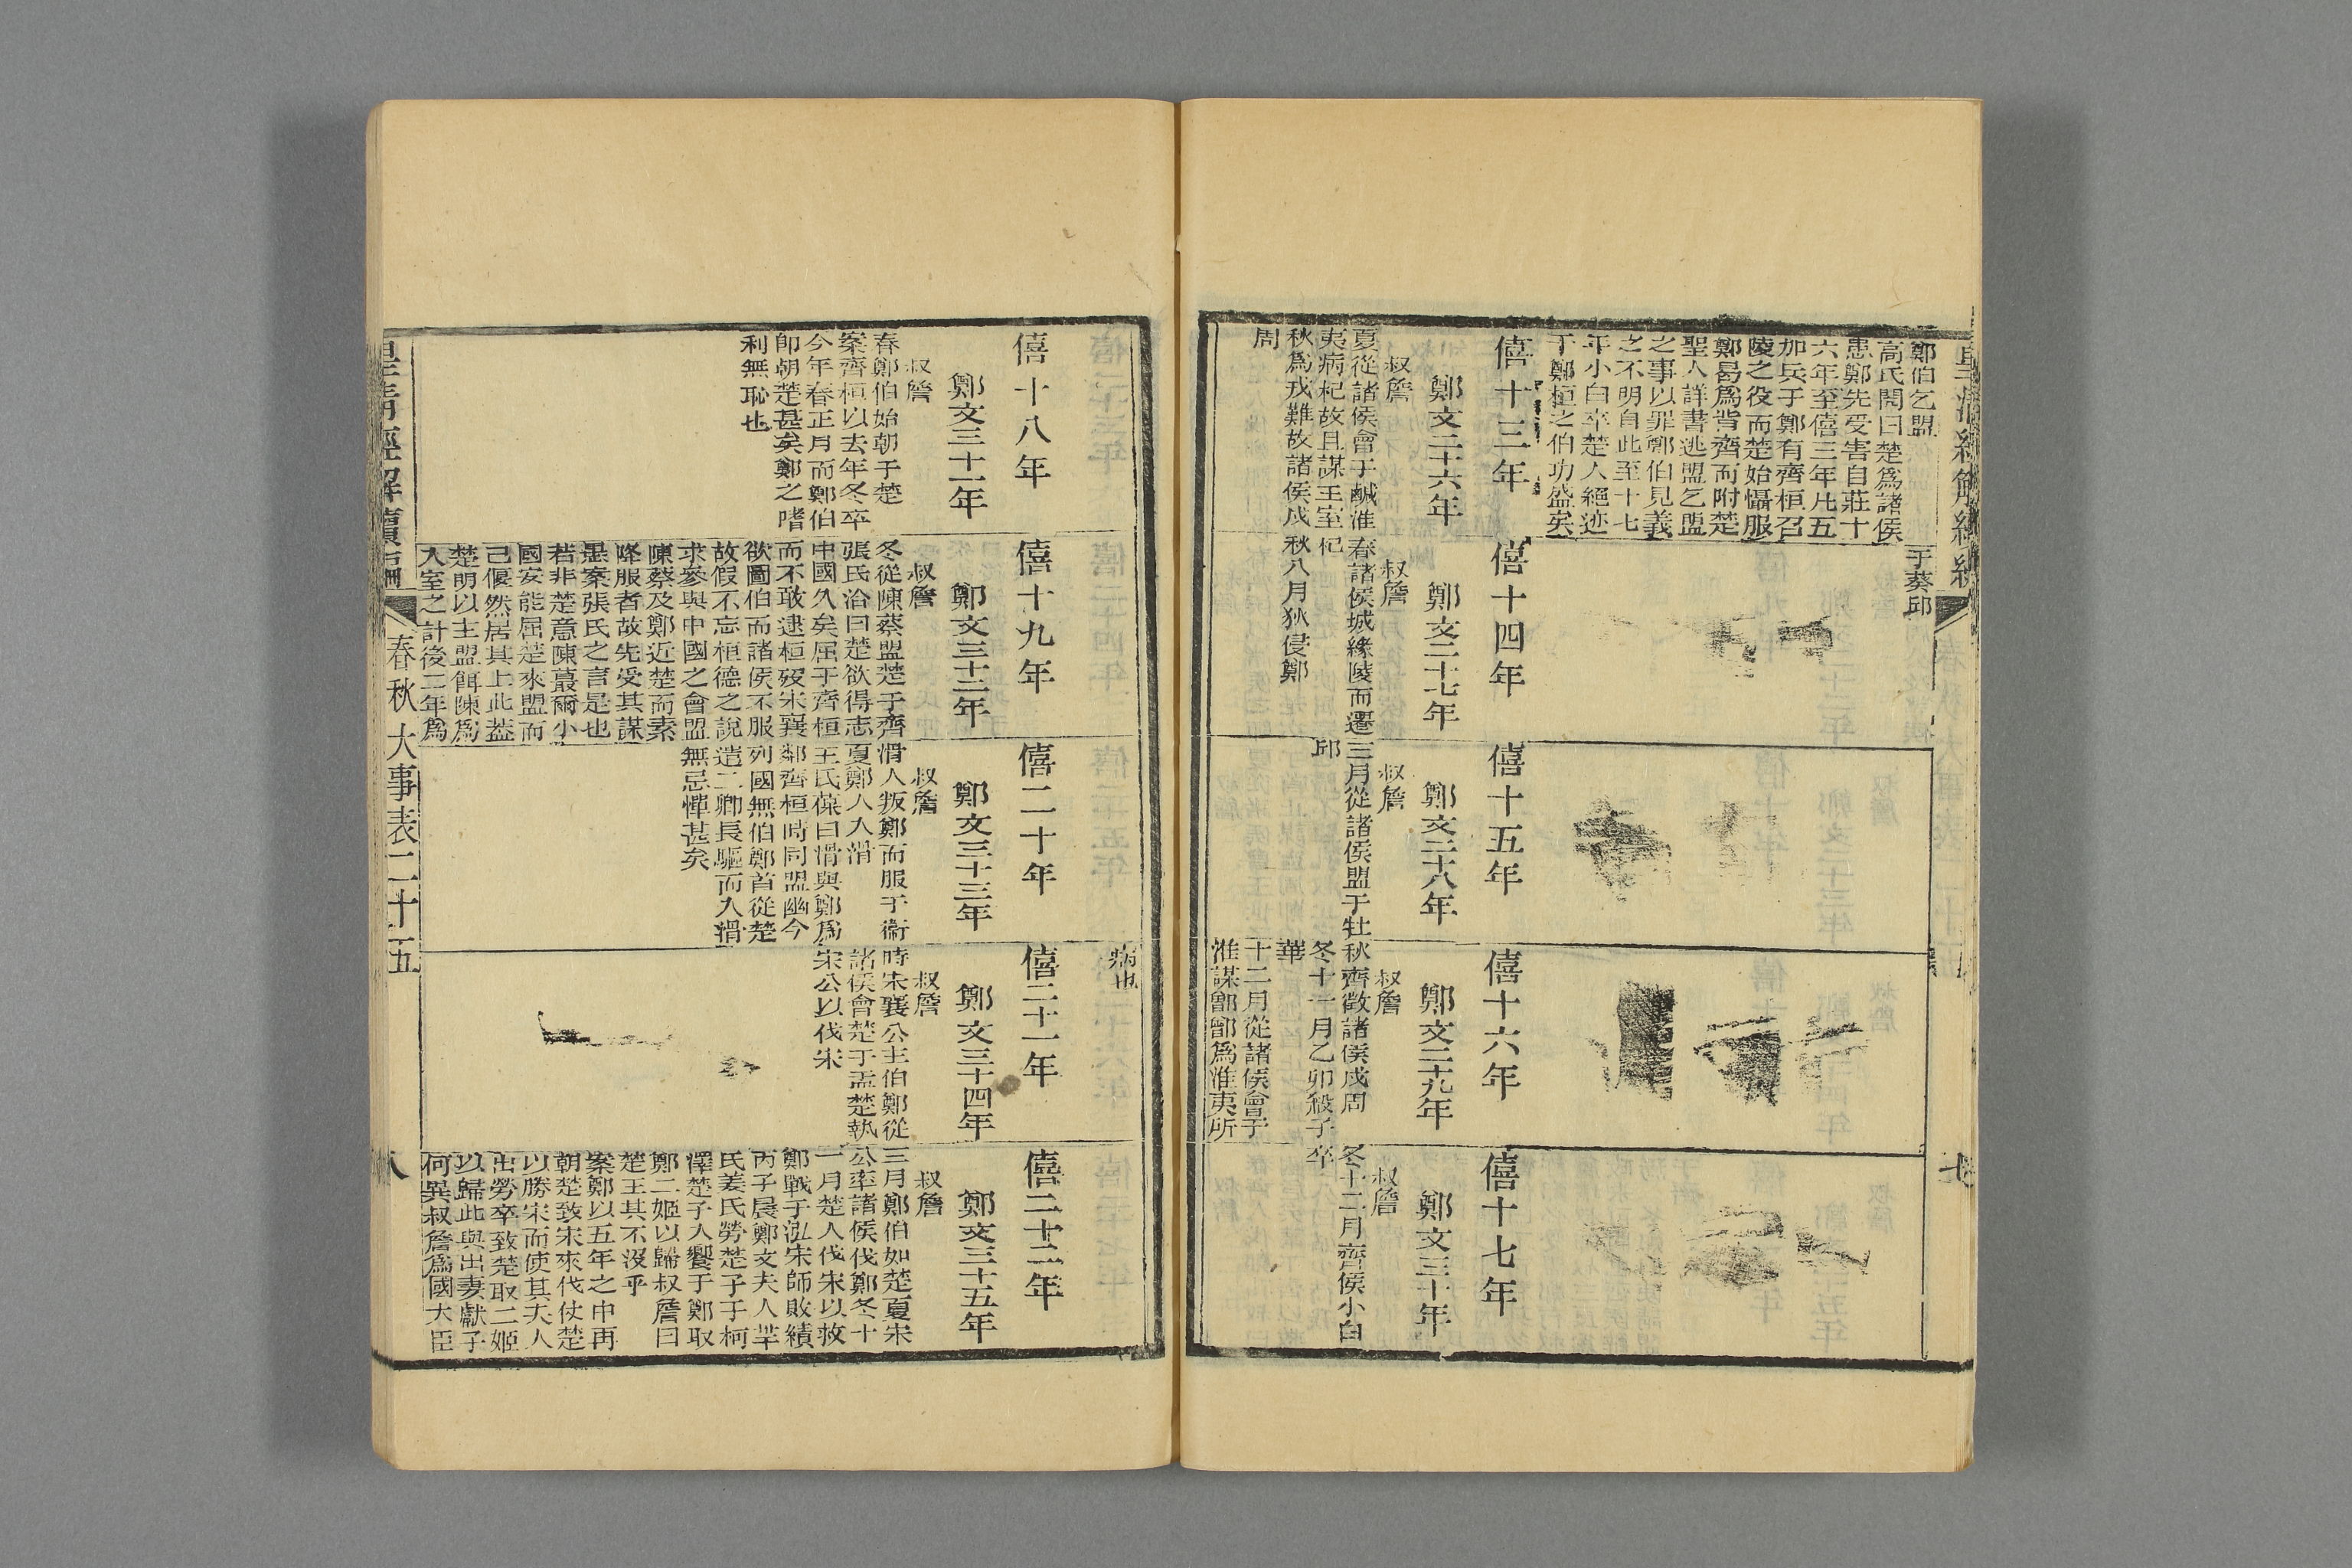 鄭伯乞盟
高氏閌曰楚爲諸侯
患鄭先受害自莊十
六年至僖三年凡五
加兵于鄭有齊桓召
陵之役而楚始懾服
鄭曷爲背齊而附楚
聖人詳書逃盟乞盟
之事以罪鄭伯見義
之不明自此至十七
年小白卒楚人絕迹
于鄭桓之伯功盛矣
于葵邱
僖十三年
鄭文二十六年
叔詹
夏從諸侯會于鹹淮
夷病杞故且謀王室
秋爲戎難故諸侯戍
周
僖十四年
鄭文二十七年
叔詹
春諸侯城緣陵而遷
杞
秋八月狄侵鄭
僖十五年
鄭文二十八年
叔詹
三月從諸侯盟于牡
邱
僖十六年
鄭文二十九年
叔詹
秋齊徵諸侯戍周
冬十一月乙卯殺子
華
十二月從諸侯會于
淮謀鄫鄫爲淮夷所
僖十七年
鄭文三十年
叔詹
冬十二月齊侯小白
卒
七
病也
僖十八年
鄭文三十一年
叔詹
春鄭伯始朝于楚
案齊桓以去年冬卒
今年春正月而鄭伯
卽朝楚甚矣鄭之嗜
利無恥也
僖十九年
鄭文三十二年
叔詹
冬從陳蔡盟楚于齊
張氏洽曰楚欲得志
中國久矣屈于齊桓
而不敢逮桓歿宋襄
欲圖伯而諸侯不服
故假不忘桓德之說
求參與中國之會盟
陳蔡及鄭近楚而素
降服者故先受其謀
愚案張氏之言是也
若非楚意陳蕞爾小
國安能屈楚來盟而
己偃然居其上此蓋
楚明以主盟餌陳爲
入室之計後二年爲
僖二十年
鄭文三十三年
叔詹
滑人叛鄭而服于衞
夏鄭人入滑
王氏葆曰滑與鄭爲
鄰齊桓時同盟幽今
列國無伯鄭首從楚
遣二卿長驅而入滑
無忌憚甚矣
僖二十一年
鄭文三十四年
叔詹
時宋襄公主伯鄭從
諸侯會楚于盂楚執
宋公以伐宋
僖二十二年
鄭文三十五年
叔詹
三月鄭伯如楚夏宋
公率諸侯伐鄭冬十
一月楚人伐宋以救
鄭戰于泓宋師敗績
丙子晨鄭文夫人羋
氏姜氏勞楚子于柯
澤楚子入饗于鄭取
鄭二姬以歸叔詹曰
楚王其不沒乎
案鄭以五年之中再
朝楚致宋來伐仗楚
以勝宋而使其夫人
出勞卒致楚取二姬
以歸此與出妻獻子
何異叔詹爲國大臣
皇清經解續編
春秋大事表二十五
八